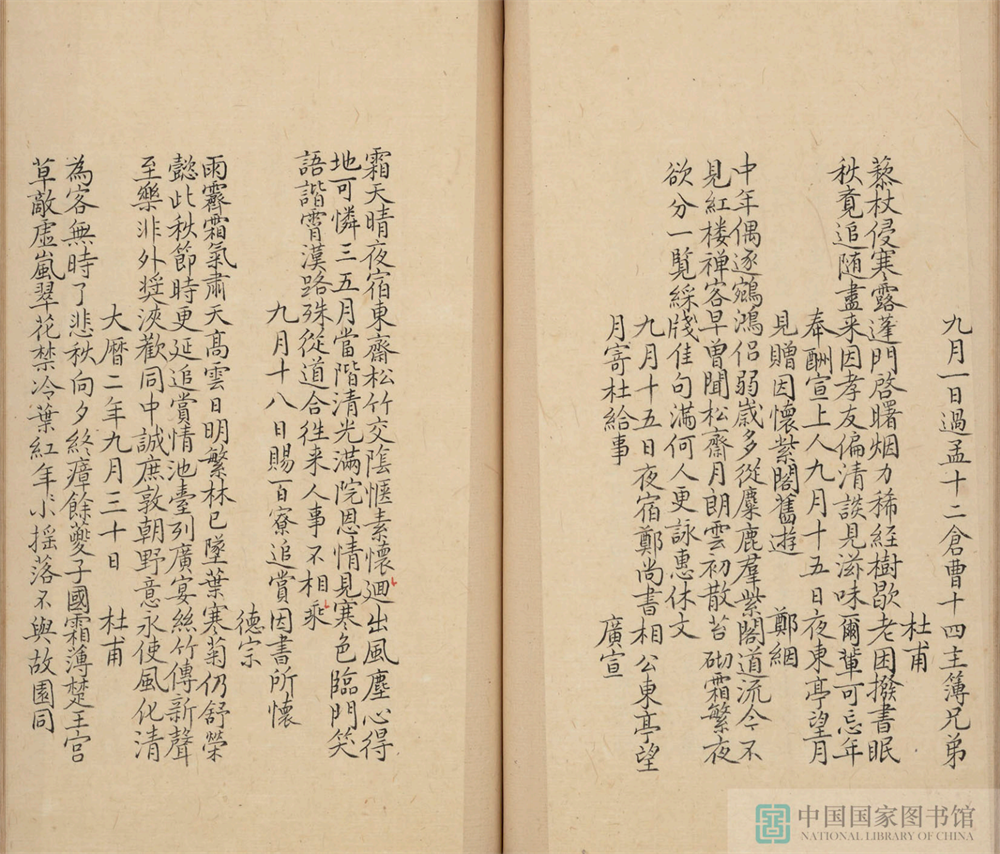 九月一日過孟十二倉曹十四主簿兄弟
杜甫
藜杖侵寒露蓬門啓曙烟力稀經樹歇老困撥書眠
秋竟追隨盡来因孝友偏清談見滋味爾軰可忘年
奉酬宣上人九月十五日夜東亭望月
見贈因懷紫閣舊遊 鄭絪
中年偶逐鵷鴻侣弱嵗多從麋鹿羣紫閣道流今不
見紅楼禅客早曽聞松齋月朗雲初散苔砌霜繁夜
欲分一覧綵牋佳句滿何人更詠惠休文
九月十五日夜宿鄭尚書相公東亭望
月寄杜給事 廣宣
霜天晴夜宿東齋松竹交陰惬素懷迴出風塵心得
地可憐三五月當階清光滿院恩情見寒色臨門笑
語諧霄漢路殊從道合徃来人事不相乘
九月十八日賜百寮追賞因書所懷
德宗
雨霽霜氣肅天髙雲日明繁林已墜葉寒菊仍舒榮
懿此秋節時更延追賞情池臺列廣宴絲竹傳新聲
至樂非外奖浹歡同中誠庶敦朝野意永使風化清
大曆二年九月三十日 杜甫
為客無時了悲秋向夕終瘴餘夔子國霜薄楚王宫
草敵虚嵐翠花禁冷葉紅年〻小摇落不與故園同
中国国家图书馆
NATIONAL LIBRARY OF CHINA